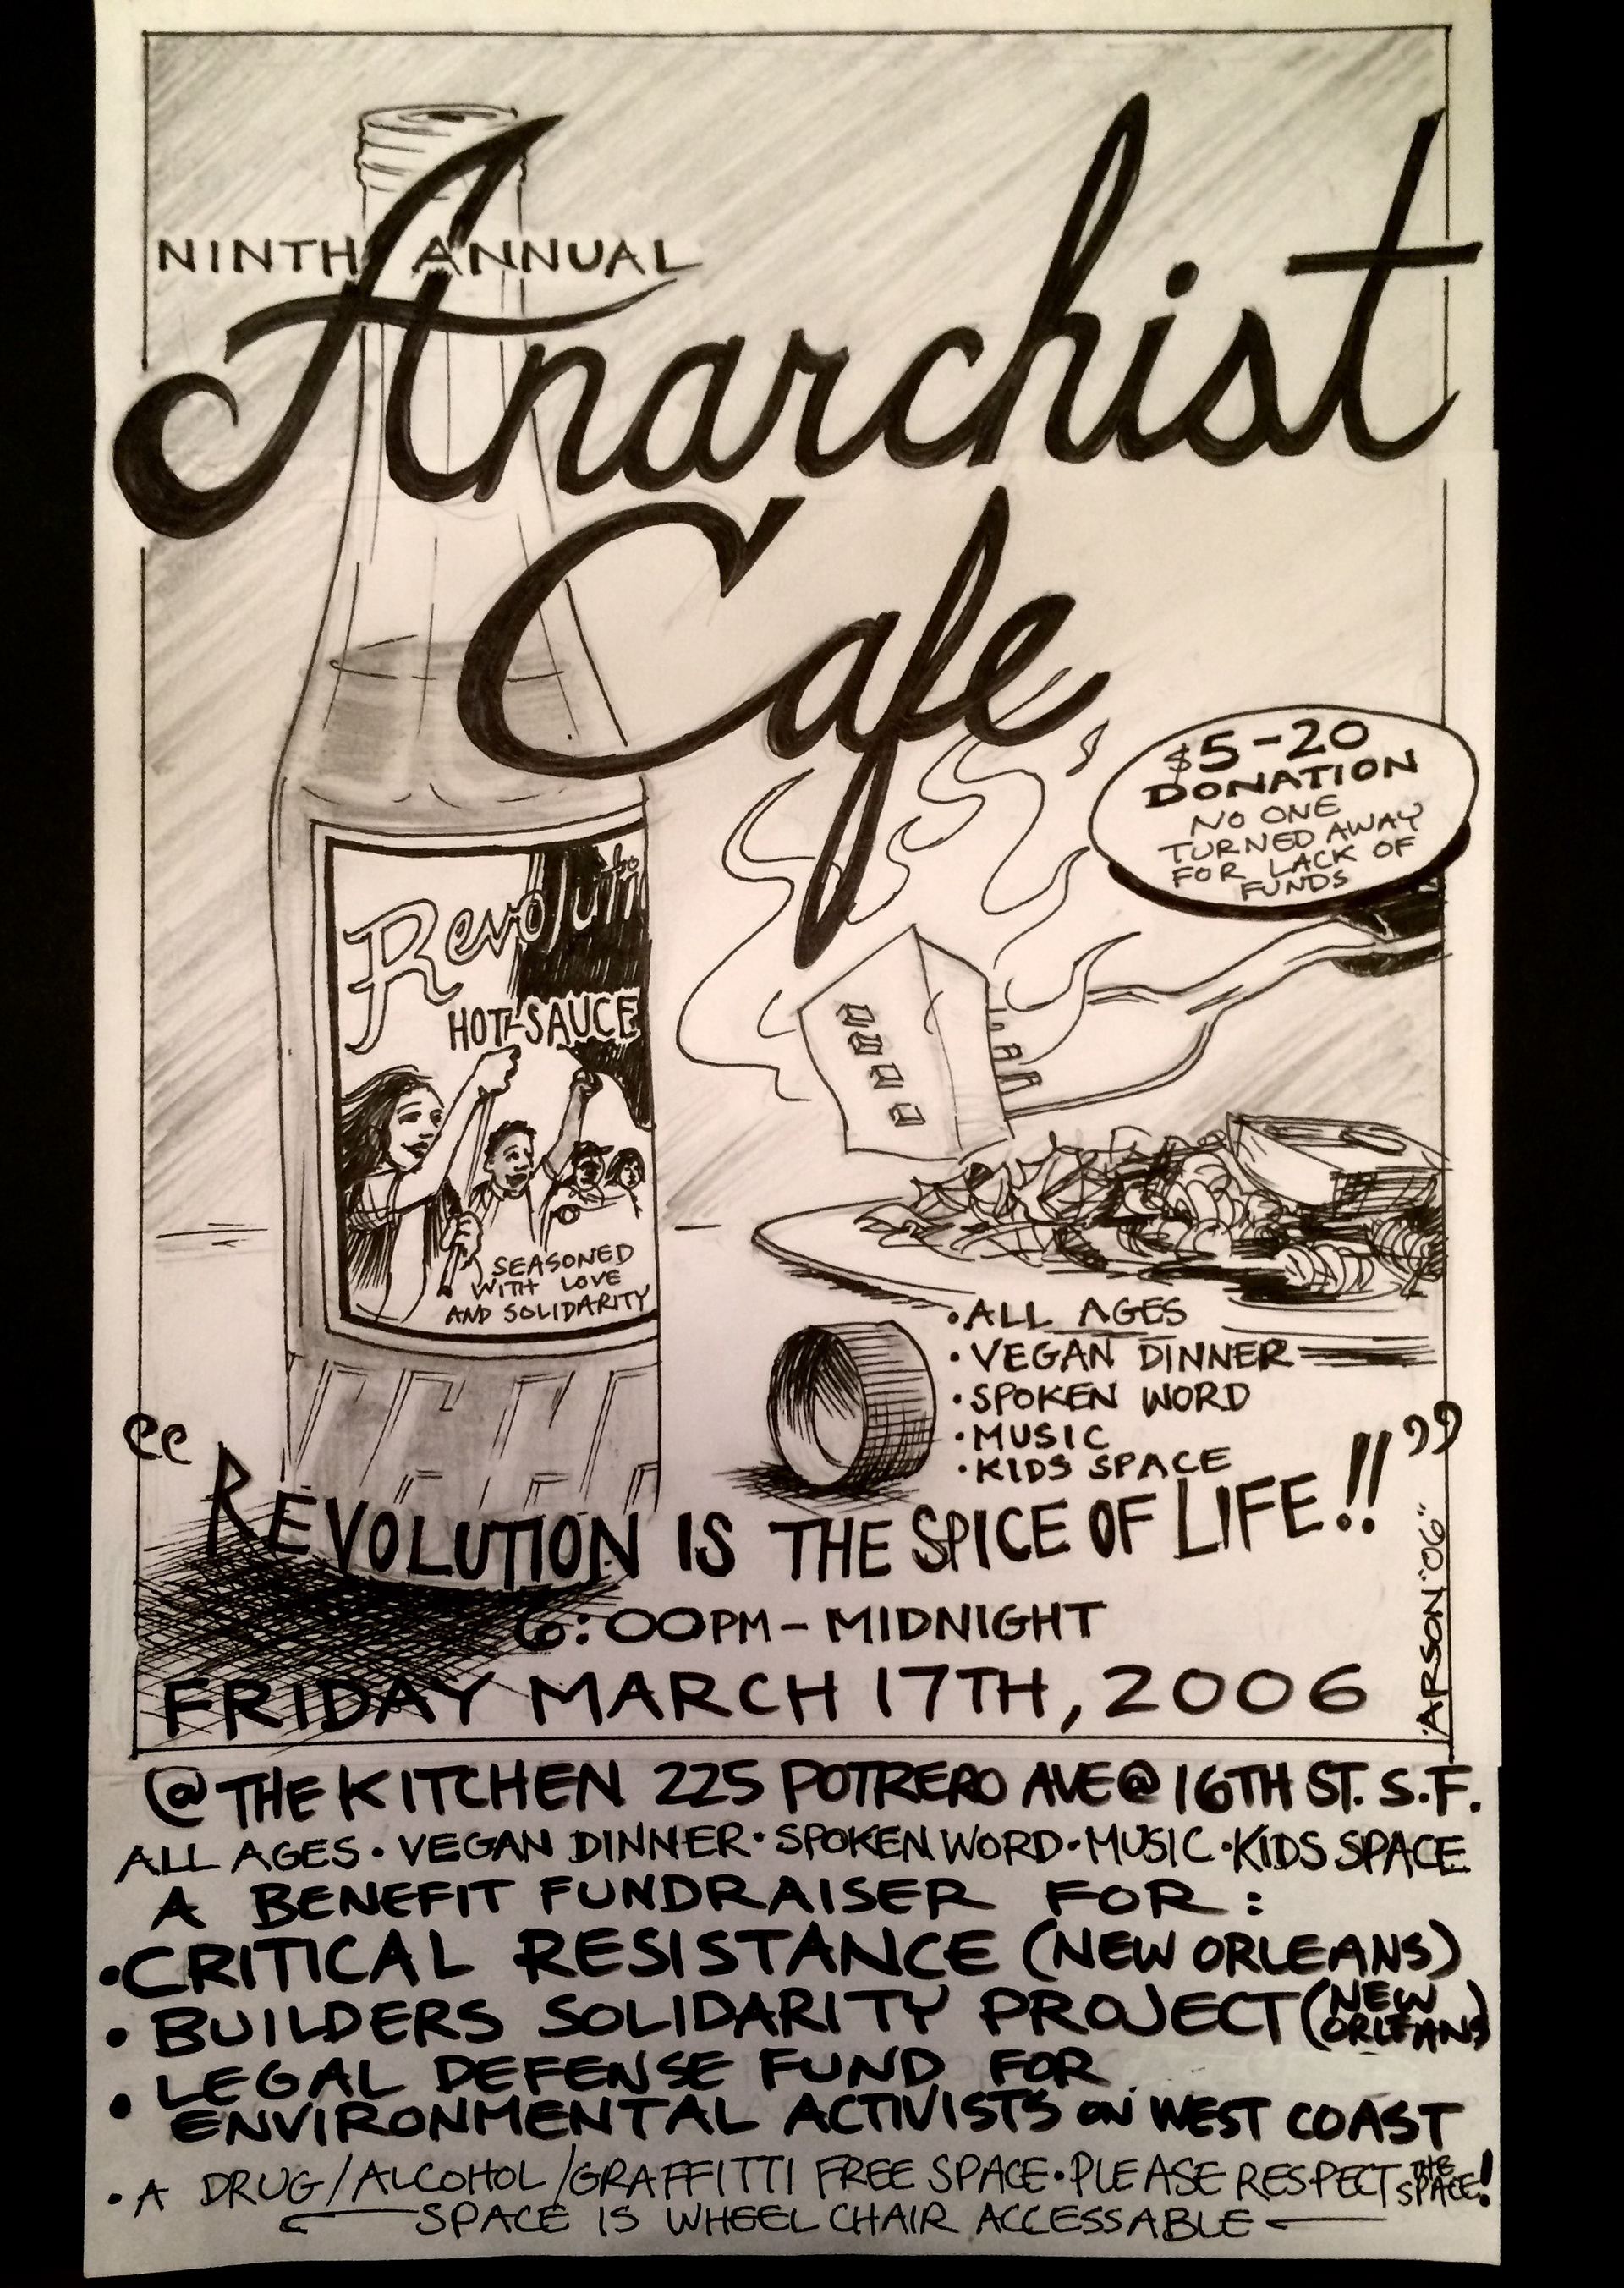 NINTH ANNUAL
Anarchist
Cafe
$5-20
DONATION
NO ONE
TURNED AWAY
FOR LACK OF
FUNDS
HOT-SAUCE
SEASONED
WITH LOVE
AND SOLIDARITY
• ALL AGES
• VEGAN DINNER
• SPOKEN WORD
• MUSIC
• KIDS SPACE
"REVOLUTION IS THE SPICE OF LIFE!!"
6:00PM - MIDNIGHT
FRIDAY MARCH 17TH, 2006
ARSON "06"
@ THE KITCHEN 225 POTRERO AVE @ 16TH ST. S.F.
ALL AGES • VEGAN DINNER • SPOKEN WORD • MUSIC • KIDS SPACE
A BENEFIT FUNDRAISER FOR:
• CRITICAL RESISTANCE (NEW ORLEANS)
• BUILDERS SOLIDARITY PROJECT (NEW ORLEANS)
• LEGAL DEFENSE FUND FOR
ENVIRONMENTAL ACTIVISTS ON WEST COAST
• A DRUG/ALCOHOL/GRAFFITTI FREE SPACE • PLEASE RESPECT THE SPACE!
SPACE IS WHEELCHAIR ACCESSABLE